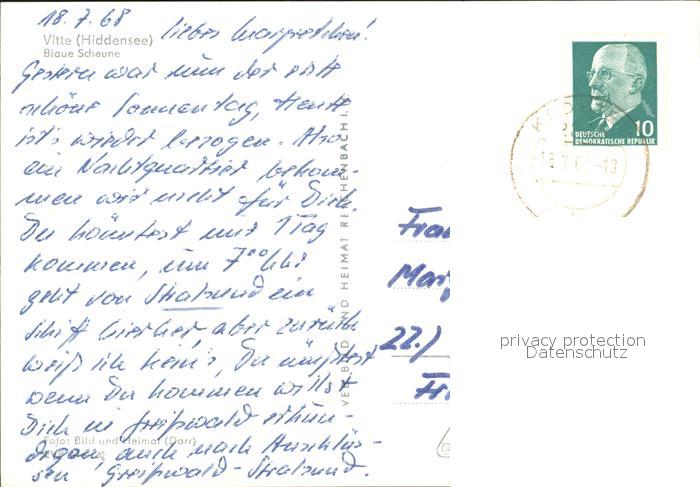 18.7.68
Vitte (Hiddensee)
Blaue Scheune
Liebes Margretchen!
Gestern war nun der erste
schöne Sonnentag, heute
ist's wieder bezogen. Also
ein Nachtquartier bekom-
men wir nicht für Dich.
Du könntest nur 1 Tag
kommen, um 7°° Uhr
geht von Stralsund ein
Schiff hierher, aber zurück
weiß ich keins, Du müßtest
wenn Du kommen willst
Dich in Greifswald erkun-
digen, auch nach Anschlüs-
sen Greifswald-Stralsund.
Foto: Bild und Heimat (Darr)
VERLAG BILD UND HEIMAT REICHENBACH I.
DEUTSCHE
DEMOKRATISCHE REPUBLIK
10
-18
Frau
22.)
privacy protection
Datenschutz